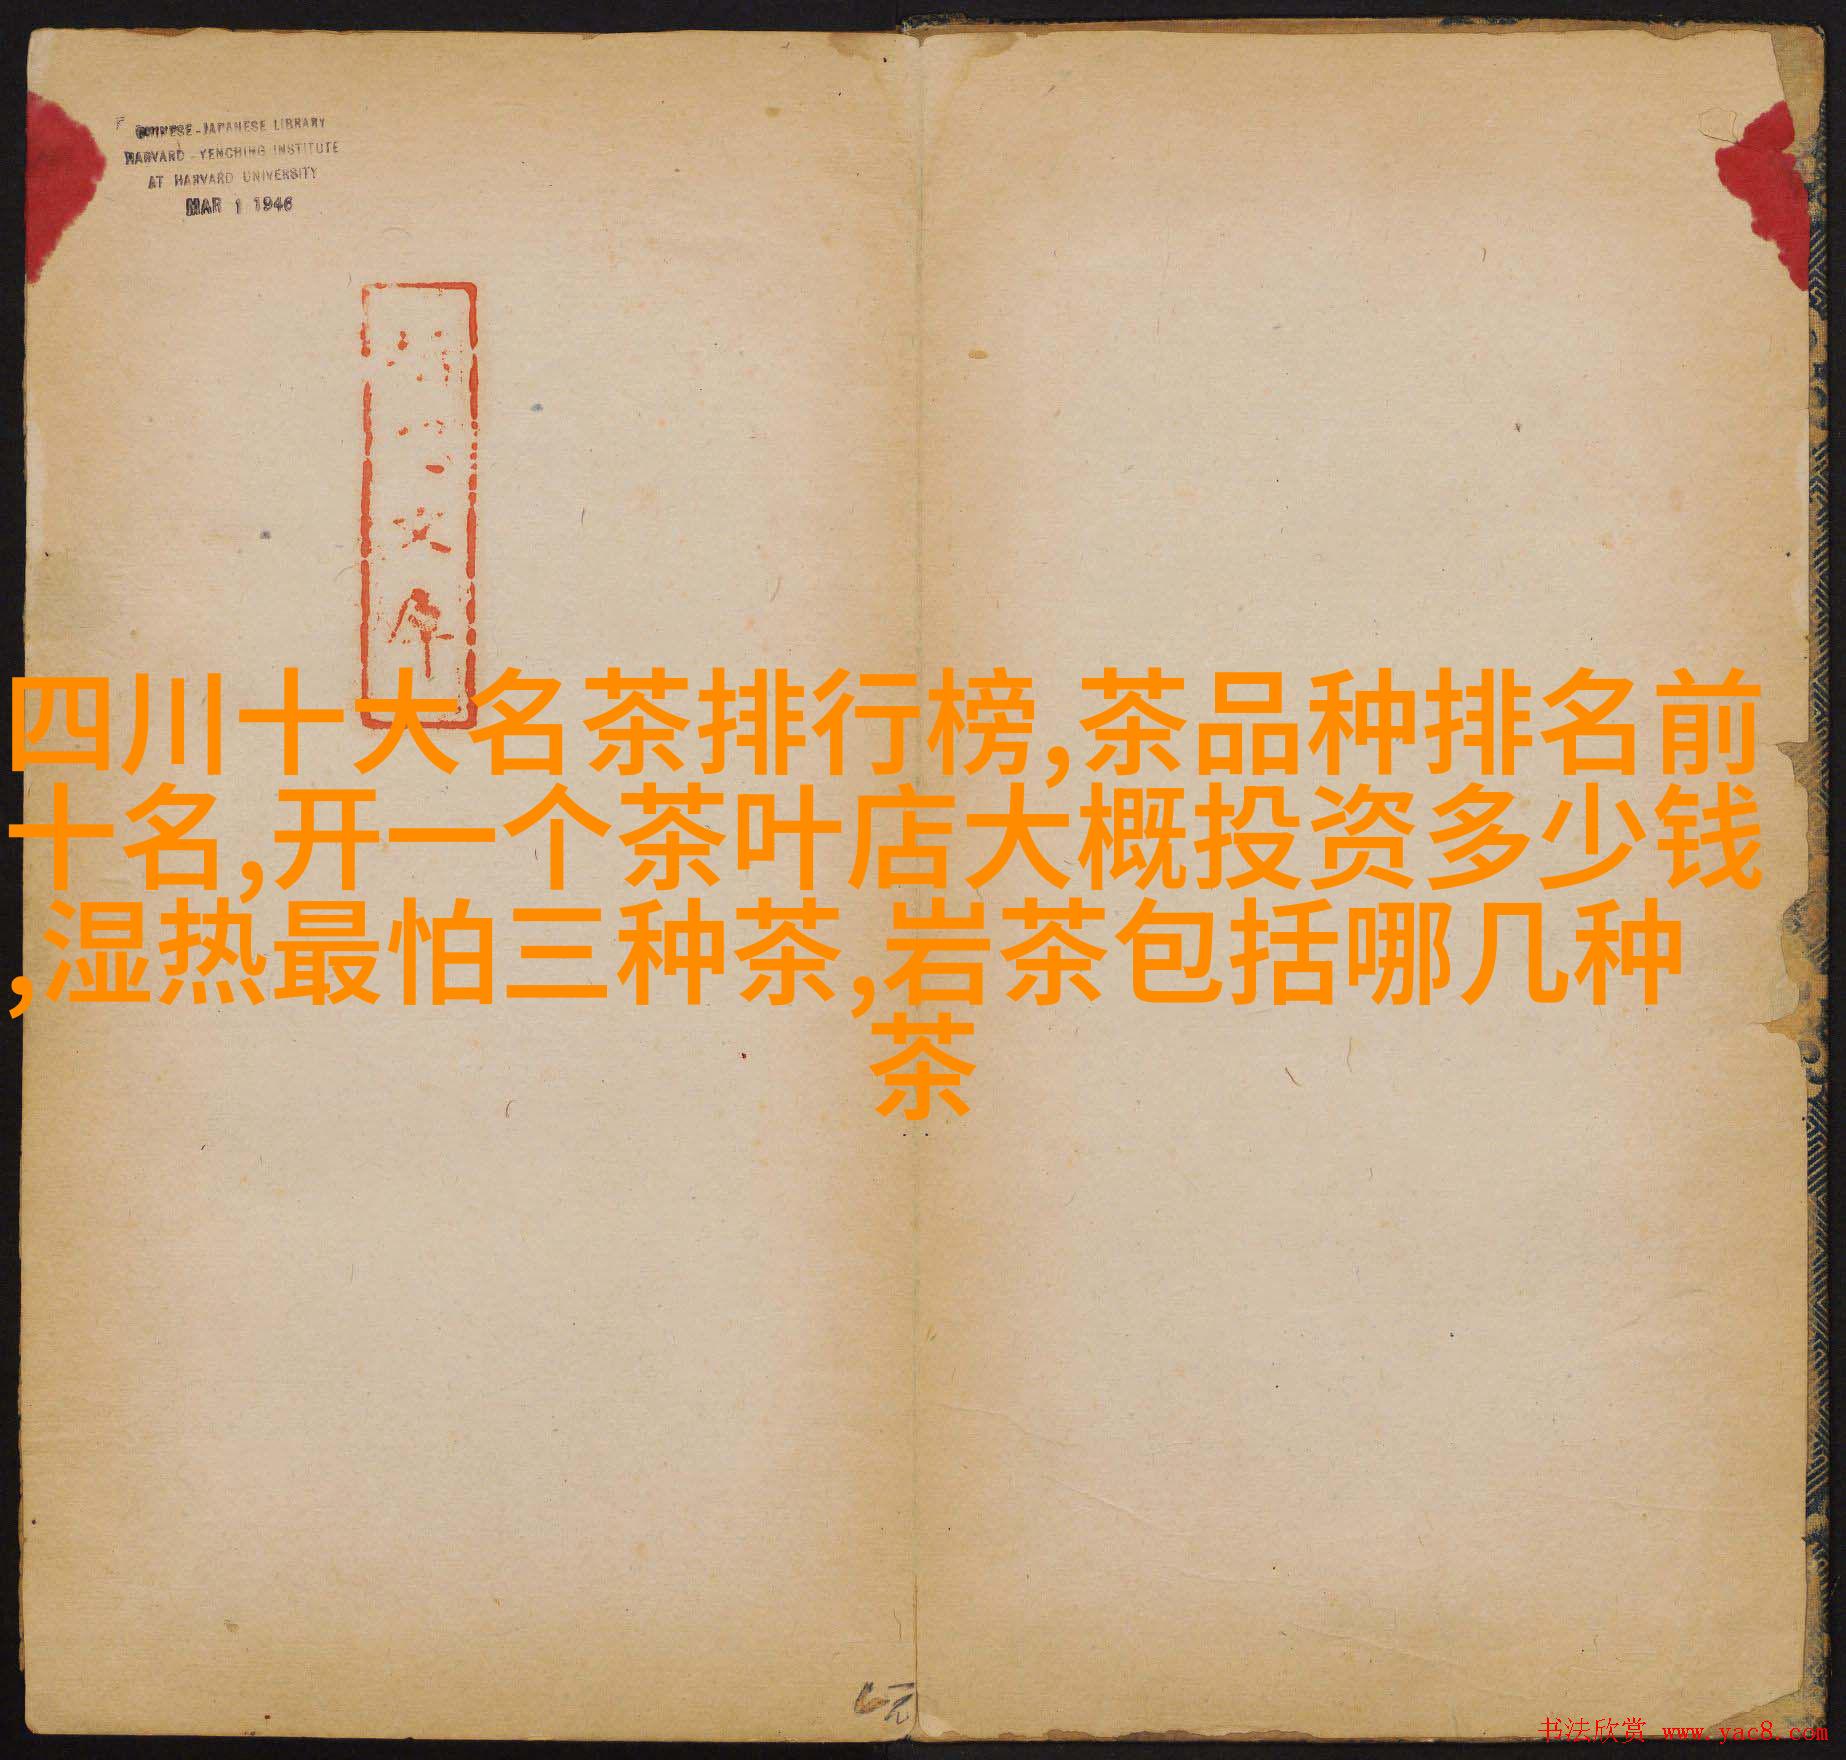 CHINESE-JAPANESE LIBRARY
HARVARD-YENCHING INSTITUTE
AT HARVARD UNIVERSITY
MAR 1 1946
四川十大名茶排行榜,茶品种排名前
十名,开一个茶叶店大概投资多少钱
,湿热最怕三种茶,岩茶包括哪几种
茶
元
书法欣赏 www.yac8.com